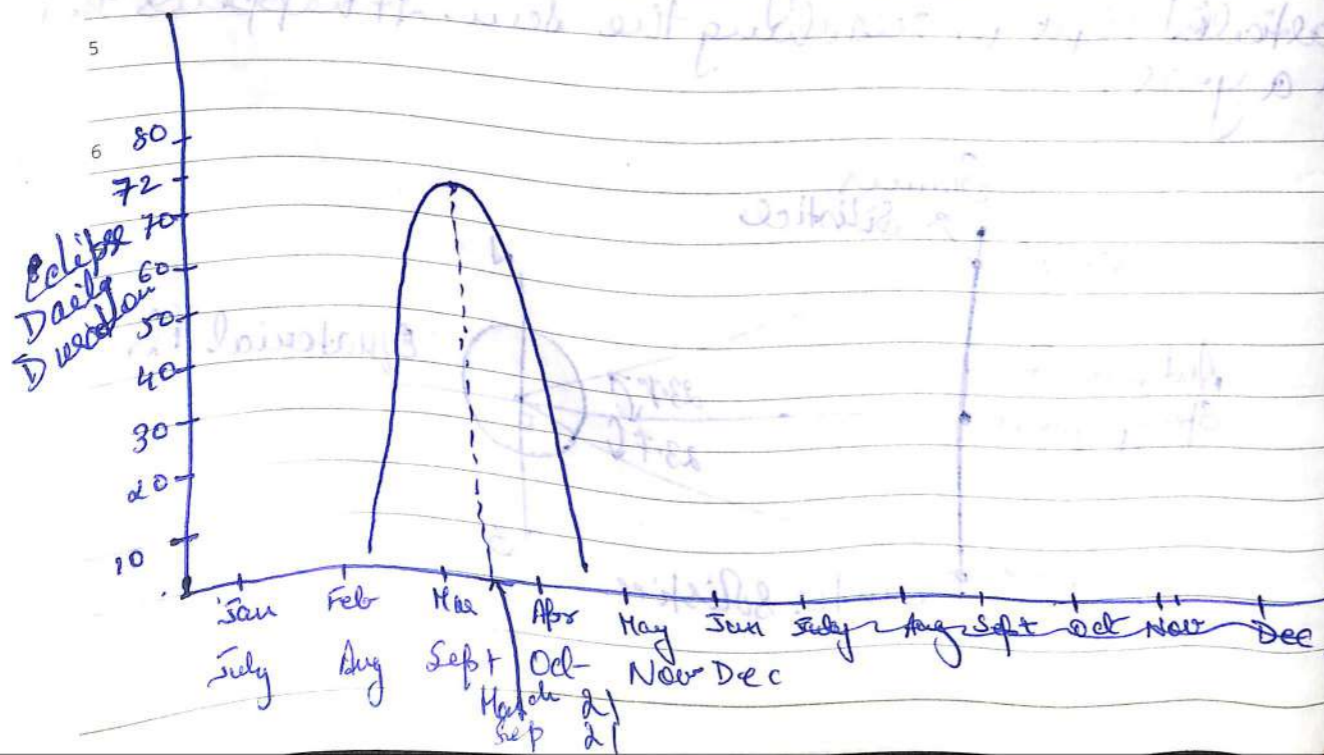 5
6
80
72
70
60
50
40
30
20
10
Eclipse
Daily
Duration
Jan Feb Mar Apr May Jun July Aug Sept Oct Nov Dec
July Aug Sept Oct Nov Dec
March 21
Sep 21